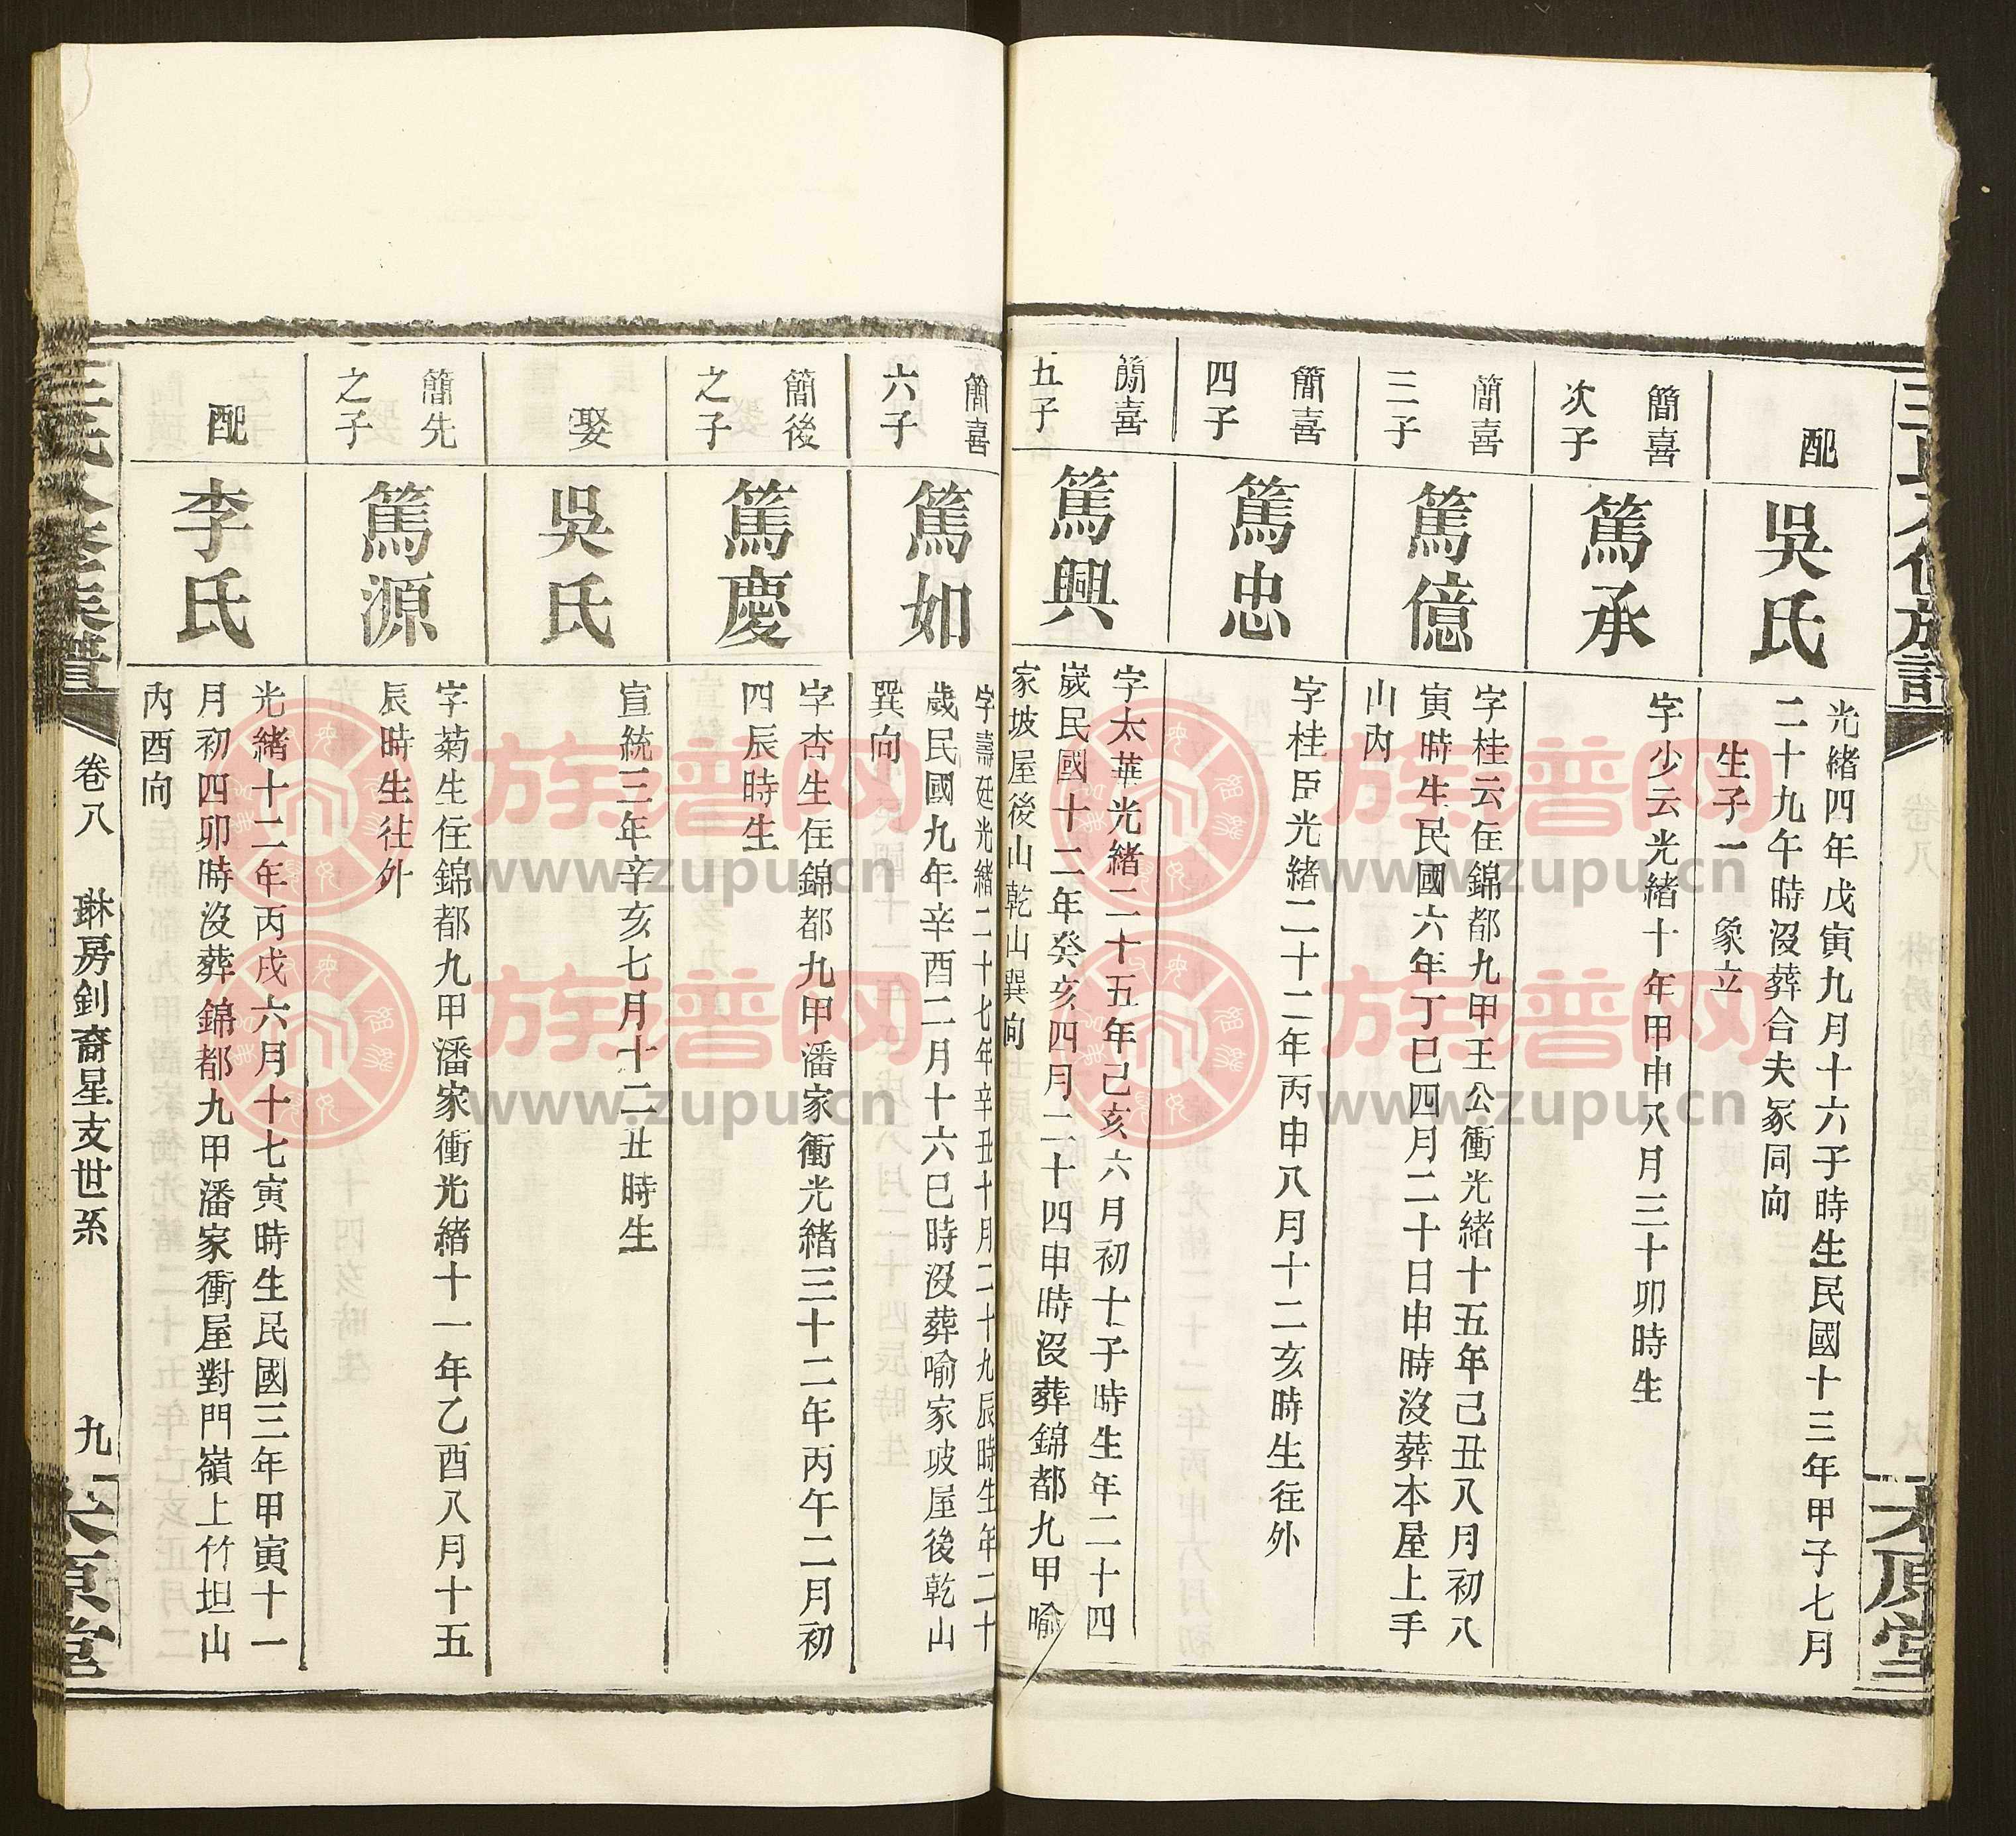 配
吳氏
光緒四年戊寅九月十六子時生民國十三年甲子七月
二十九午時沒葬合夫冢同向
生子一 象立
簡喜
次子
篤承
字少云光緒十年甲申八月三十卯時生
簡喜
三子
篤億
字桂云住錦都九甲王公衝光緒十五年己丑八月初八
寅時生民國六年丁巳四月二十日申時沒葬本屋上手
山內
簡喜
四子
篤忠
字桂臣光緒二十二年丙申八月十二亥時生往外
簡喜
五子
篤興
字太華光緒二十五年己亥六月初十子時生年二十四
歲民國十二年癸亥四月二十四申時沒葬錦都九甲喻
家坡屋後山乾山巽向
簡喜
六子
篤如
字壽廷光緒二十七年辛丑十月二十九辰時生年二十
歲民國九年辛酉二月十六巳時沒葬喻家坡屋後乾山
巽向
簡後
之子
篤慶
字杏生住錦都九甲潘家衝光緒三十二年丙午二月初
四辰時生
娶
吳氏
宣統三年辛亥七月十二丑時生
簡先
之子
篤源
字菊生住錦都九甲潘家衝光緒十一年乙酉八月十五
辰時生往外
配
李氏
光緒十二年丙戌六月十七寅時生民國三年甲寅十一
月初四卯時沒葬錦都九甲潘家衝屋對門嶺上竹坦山
內酉向
卷八 琳房釗裔星支世系 九
太原堂
族譜网
www.zupu.cn
族譜网
www.zupu.cn
族譜网
www.zupu.cn
族譜网
www.zupu.cn